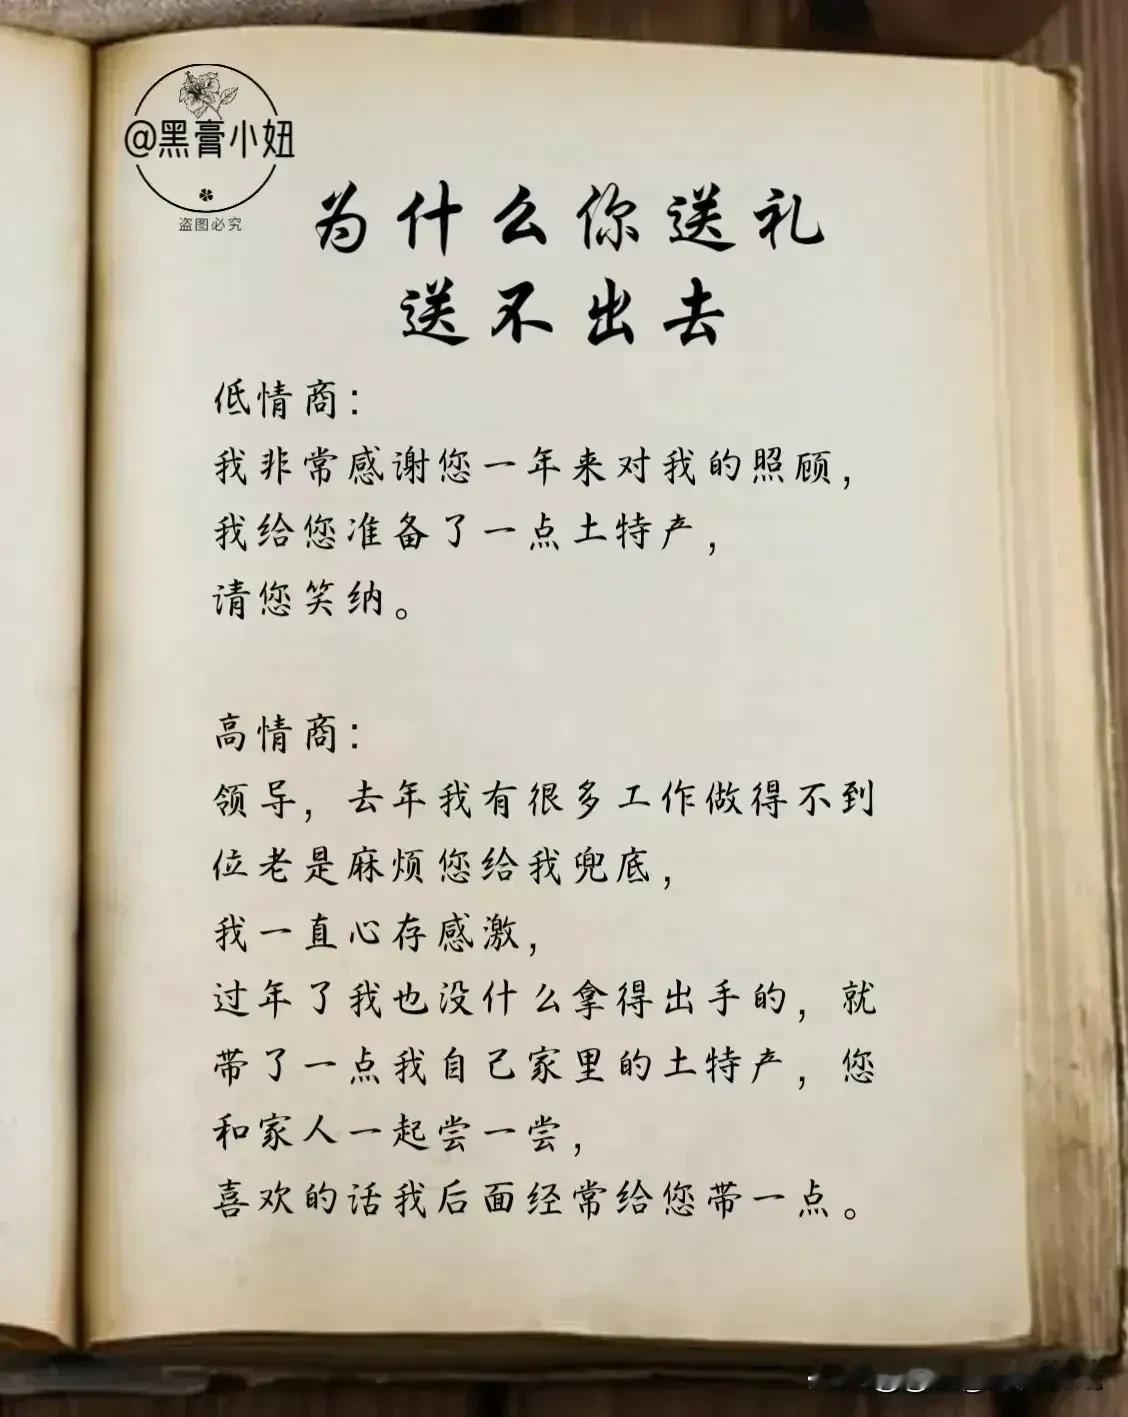 @黑膏小妞
盗图必究
为什么你送礼
送不出去
低情商：
我非常感谢您一年来对我的照顾，
我给您准备了一点土特产，
请您笑纳。
高情商：
领导，去年我有很多工作做得不到
位老是麻烦您给我兜底，
我一直心存感激，
过年了我也没什么拿得出手的，就
带了一点我自己家里的土特产，您
和家人一起尝一尝，
喜欢的话我后面经常给您带一点。